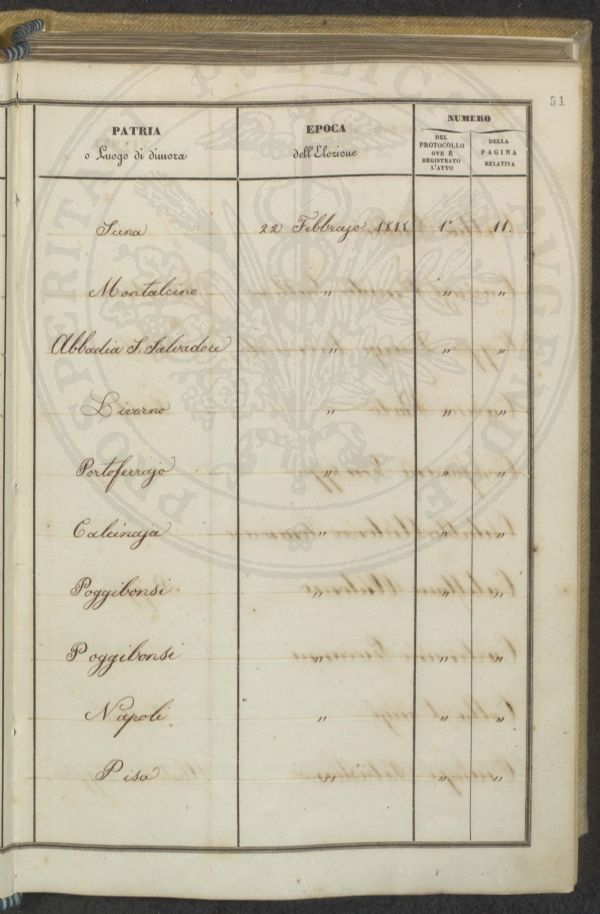 51
PATRIA
o Luogo di dimora
EPOCA
dell'Elezione
NUMERO
DEL
PROTOCOLLO
OVE È
REGISTRATO
L'ATTO
DELLA
PAGINA
RELATIVA
Siena 22 Febbrajo 1818 1° 11.
Montalcino " " "
Abbadia S. Salvadore " " "
Livorno " " "
Portoferrajo " " "
Calcinaja " " "
Poggibonsi " " "
Poggibonsi " " "
Napoli " " "
Pisa " " "